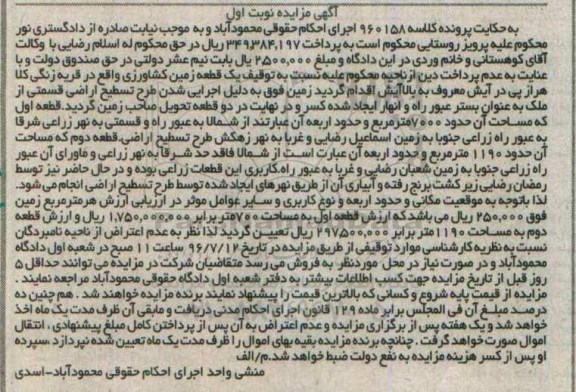 آگهی مزایده نوبت اول
به حکایت پرونده کلاسه ۹۶۰۱۵۸ اجرای احکام حقوقی محمودآباد و به موجب نیابت صادره از دادگستری نور
محکوم علیه پرویز روستایی محکوم است به پرداخت ۳۴۹,۳۸۴,۱۹۷ ریال در حق محکوم له اسلام رضایی با وکالت
آقای کوهستانی و خانم وردی در این دادگاه و مبلغ ۲,۵۰۰,۰۰۰ ریال بابت نیم عشر دولتی در حق صندوق دولت و با
عنایت به عدم پرداخت دین از ناحیه محکوم علیه نسبت به توقیف یک قطعه زمین کشاورزی واقع در قریه زنگی کلا
هراز پی در آیش معروف به بالاآیش اقدام گردید زمین فوق به دلیل اجرایی شدن طرح تسطیح اراضی قسمتی از
ملک به عنوان بستر عبور راه و انهار ایجاد شده کسر و در نهایت در دو قطعه تحویل صاحب زمین گردید. قطعه اول
که مساحت آن حدود ۷۰۰۰مترمربع و حدود اربعه آن عبارتند از شمالا به عبور راه و قسمتی به نهر زراعی شرقا
به عبور راه زراعی جنوبا به زمین اسماعیل رضایی و غربا به نهر زهکش طرح تسطیح اراضی. قطعه دوم که مساحت
آن حدود ۱۱۹۰ مترمربع و حدود اربعه آن عبارت است از شمالا فاقد حد شرقا به نهر زراعی و ماورای آن عبور
راه زراعی جنوبا به زمین شعبان رضایی و غربا به عبور راه.کاربری این قطعات زراعی بوده و در حال حاضر نیز توسط
رمضان رضایی زیر کشت برنج رفته و آبیاری آن از طریق نهرهای ایجاد شده توسط طرح تسطیح اراضی انجام می‌شود.
لذا باتوجه به موقعیت مکانی و حدود اربعه و نوع کاربری و سایر عوامل موثر در ارزیابی ارزش هرمترمربع زمین
فوق ۲۵۰,۰۰۰ ریال می باشد که ارزش قطعه اول به مساحت ۷۰۰متر برابر ۱,۷۵۰,۰۰۰,۰۰۰ ریال و ارزش قطعه
دوم به مساحت ۱۱۹۰متر برابر ۲۹۷۵۰۰,۰۰۰ ریال تعییت گردید لذا نظر به عدم اعتراض از ناحیه نامبردگان
نسبت به نظریه کارشناسی موارد توقیفی از طریق مزایده در تاریخ ۹۶/۷/۱۲ ساعت ۱۱ صبح در شعبه اول دادگاه
محمودآباد و در صورت نیاز در محل موردنظر به فروش می رسد متقاضیان شرکت در مزایده می توانند حداقل ۵
روز قبل از تاریخ مزایده جهت کسب اطلاعات بیشتر به دفتر شعبه اول دادگاه حقوقی محمودآباد مراجعه نمایند .
مزایده از قیمت پایه شروع و کسانی که بالاترین قیمت را پیشنهاد نمایند برنده مزایده خواهند شد . هم چنین ده
درصد مبلغ آن فی المجلس برابر ماده ۱۲۹ قانون اجرای احکام مدنی دریافت و مابقی آن ظرف مدت یک ماه اخذ
خواهد شد و یک هفته پس از برگزاری مزایده و عدم اعتراض به آن پس از پرداختن کامل مبلغ پیشنهادی ، انتقال
اموال صورت خواهد گرفت . چنانچه برنده مزایده بقیه بهای اموال را ظرف مدت یک ماه تعیین شده نپردازد سپرده
او پس از کسر هزینه مزایده به نفع دولت ضبط خواهد شد.م/الف
منشی واحد اجرای احکام حقوقی محمودآباد-اسدی